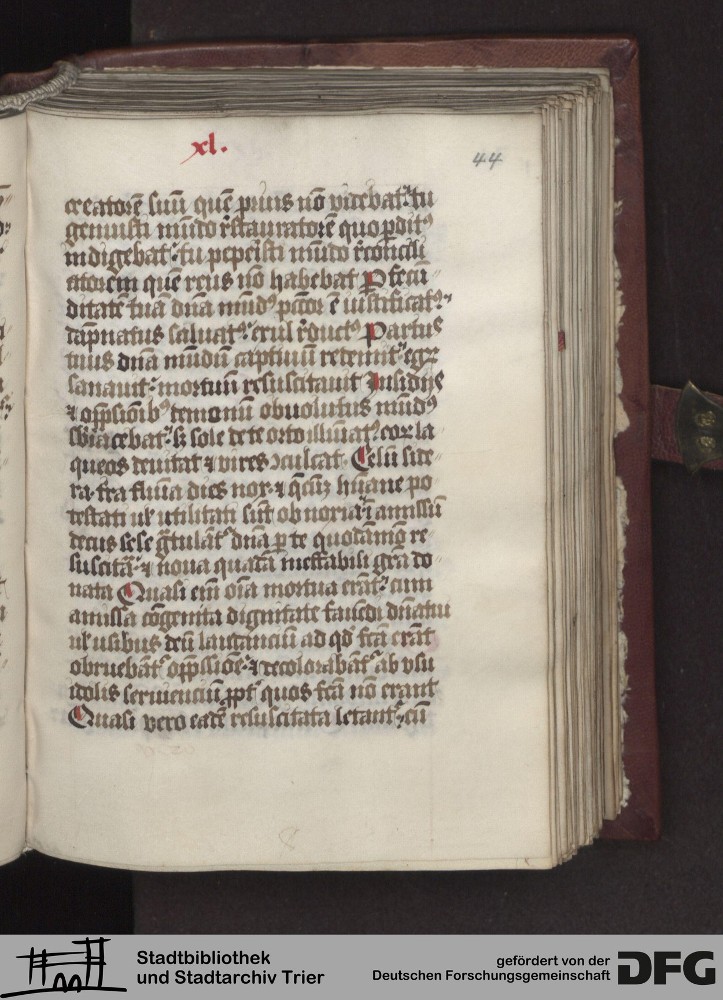 xl.
44
creatorē suū quē prius nō videbat: tu
genuisti mūdo r̄stauratorē quo ꝑditꝰ
indigebat: tu peperisti mūdo r̄concili
atorem quē reus nō habebat Per fecū
ditatē tuā dn̄a mūdꝰ pc̄cor ē iustificatꝰ:
dāpnatus saluatꝰ: exul r̄ductꝰ Partus
tuus dn̄a mūdū captiuū redemit: egrū
sanauit: mortuū resuscitauit Insidijs
⁊ opp̄ssionibꝰ demonū obuolutus mūdꝰ
subiacebat: sȝ sole de te orto illūiatꝰ: eorū la
queos deuitat ⁊ vires ↄculcat Celū side
ra t̄ra flūia dies nox ⁊ q̄cūqȝ hūane po
testati ul̓ utilitati sūt obnoria ī amissū
decus sese g̃tulāt̓ dn̄a ꝑ te quodāmō re
suscitā ⁊ noua quadā ineffabili gr̄a do
nata Quasi em̄ oīa mortua erāt: cum
amissa cōgenita dignitate fauēdi dn̄atui
ul̓ usibus deū laudanciū ad qd̓ fc̄a erāt
obruebāt̓ opp̄ssiōe: ⁊ decolorabāt̓ ab vsu
idolis seruienciū ꝓpt̓ quos fc̄a nō erant
Quasi vero eadē resuscitata letant̓: cū
Stadtbibliothek
und Stadtarchiv Trier
gefördert von der
Deutschen Forschungsgemeinschaft
DFG